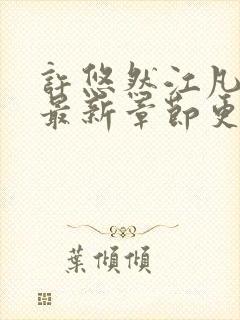 許悠然江凡
最新章節更
葉傾傾